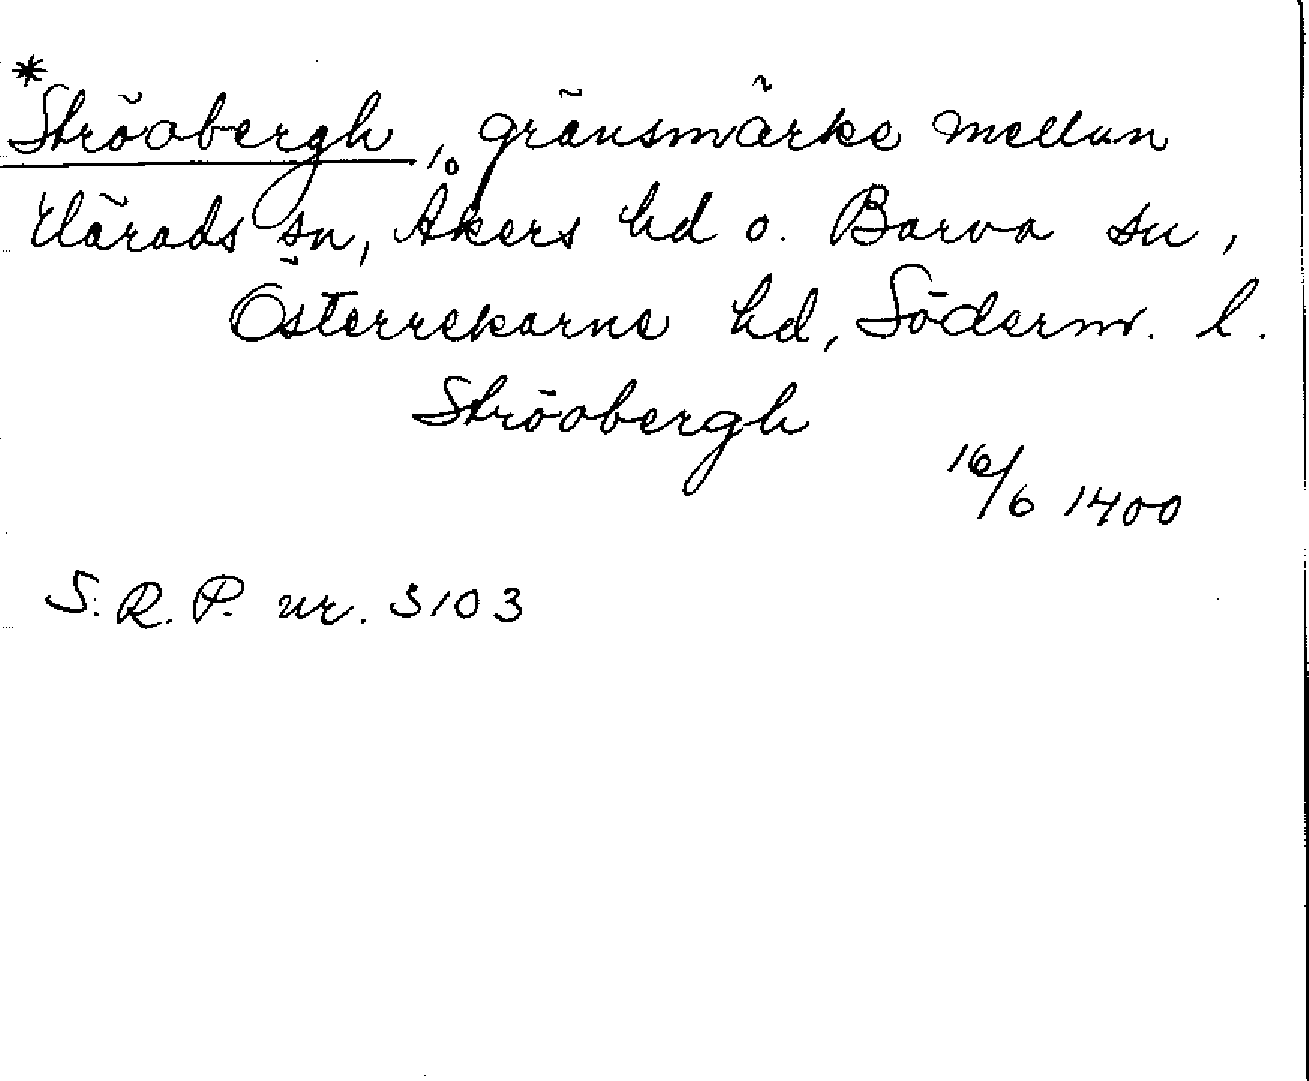 *
Ströabergh, gränsmärke mellan
Härads sn, Åkers hd o. Barva sn,
Österrekarne hd, Söderm. l.
Ströabergh
16/6 1400
S. R. P. nr. 3103